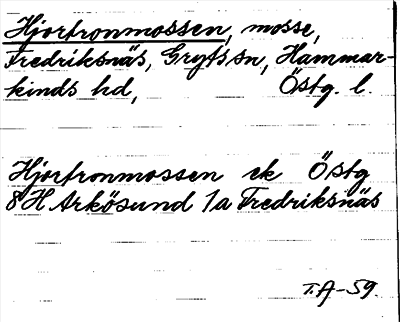 Hjortronmossen, mosse,
Fredriksnäs, Gryts sn, Hammar-
kinds hd, Östg. l.
Hjortronmossen ek Östg
8 H Arkösund 1a Fredriksnäs
T.A-59.